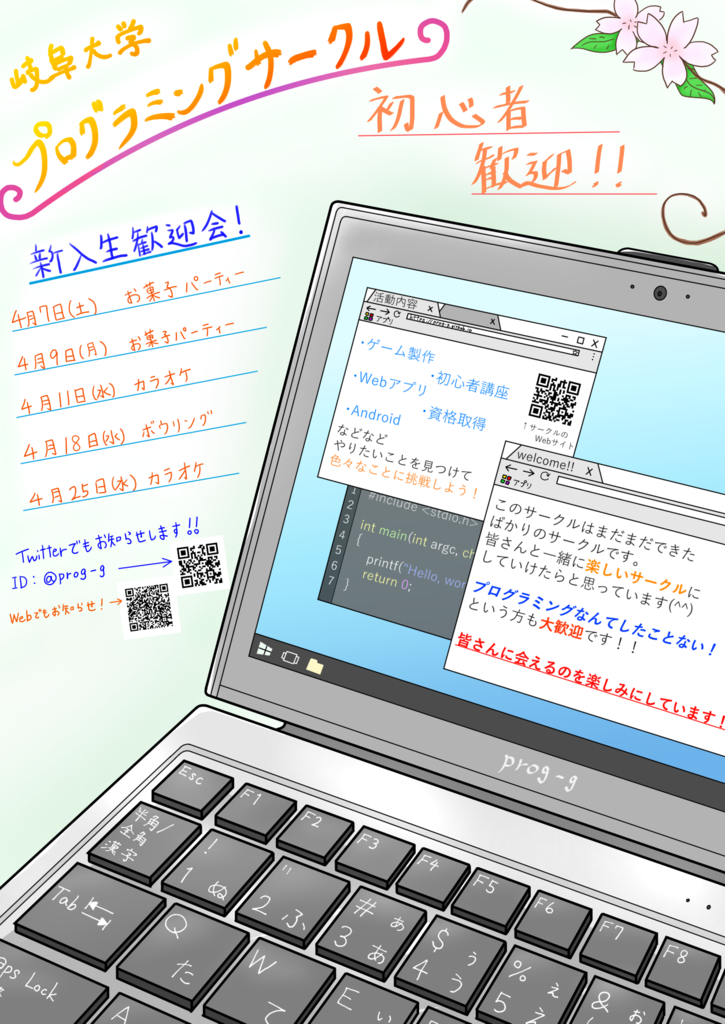 岐阜大学
プログラミングサークル
初心者
歓迎!!
新入生歓迎会!
4月7日(土) お菓子パーティー
4月9日(月) お菓子パーティー
4月11日(水) カラオケ
4月18日(水) ボウリング
4月25日(水) カラオケ
Twitterでもお知らせします!!
ID:@prog-g
Webでもお知らせ!→
活動内容 x x
アプリ
・ゲーム製作
・Webアプリ ・初心者講座
・Android ・資格取得
などなど
やりたいことを見つけて
色々なことに挑戦しよう!
↑サークルの
Webサイト
1 #include <stdio.h>
2
3 int main(int argc, ch
4 {
5 printf("Hello, wor
6 return 0;
7 }
welcome!! x
アプリ
このサークルはまだまだできた
ばかりのサークルです。
皆さんと一緒に楽しいサークルに
していけたらと思っています(^^)
プログラミングなんてしたことない!
という方も大歓迎です!!
皆さんに会えるのを楽しみにしています!
prog-g
Esc F1 F2 F3 F4 F5 F6 F7 F8
半角/
全角
漢字
! 1 ぬ
" 2 ふ
# ぁ 3 あ
$ ぅ 4 う
% ぇ 5 え
& ぉ
Tab
Q た
W て
E ぃ
ps Lock
A